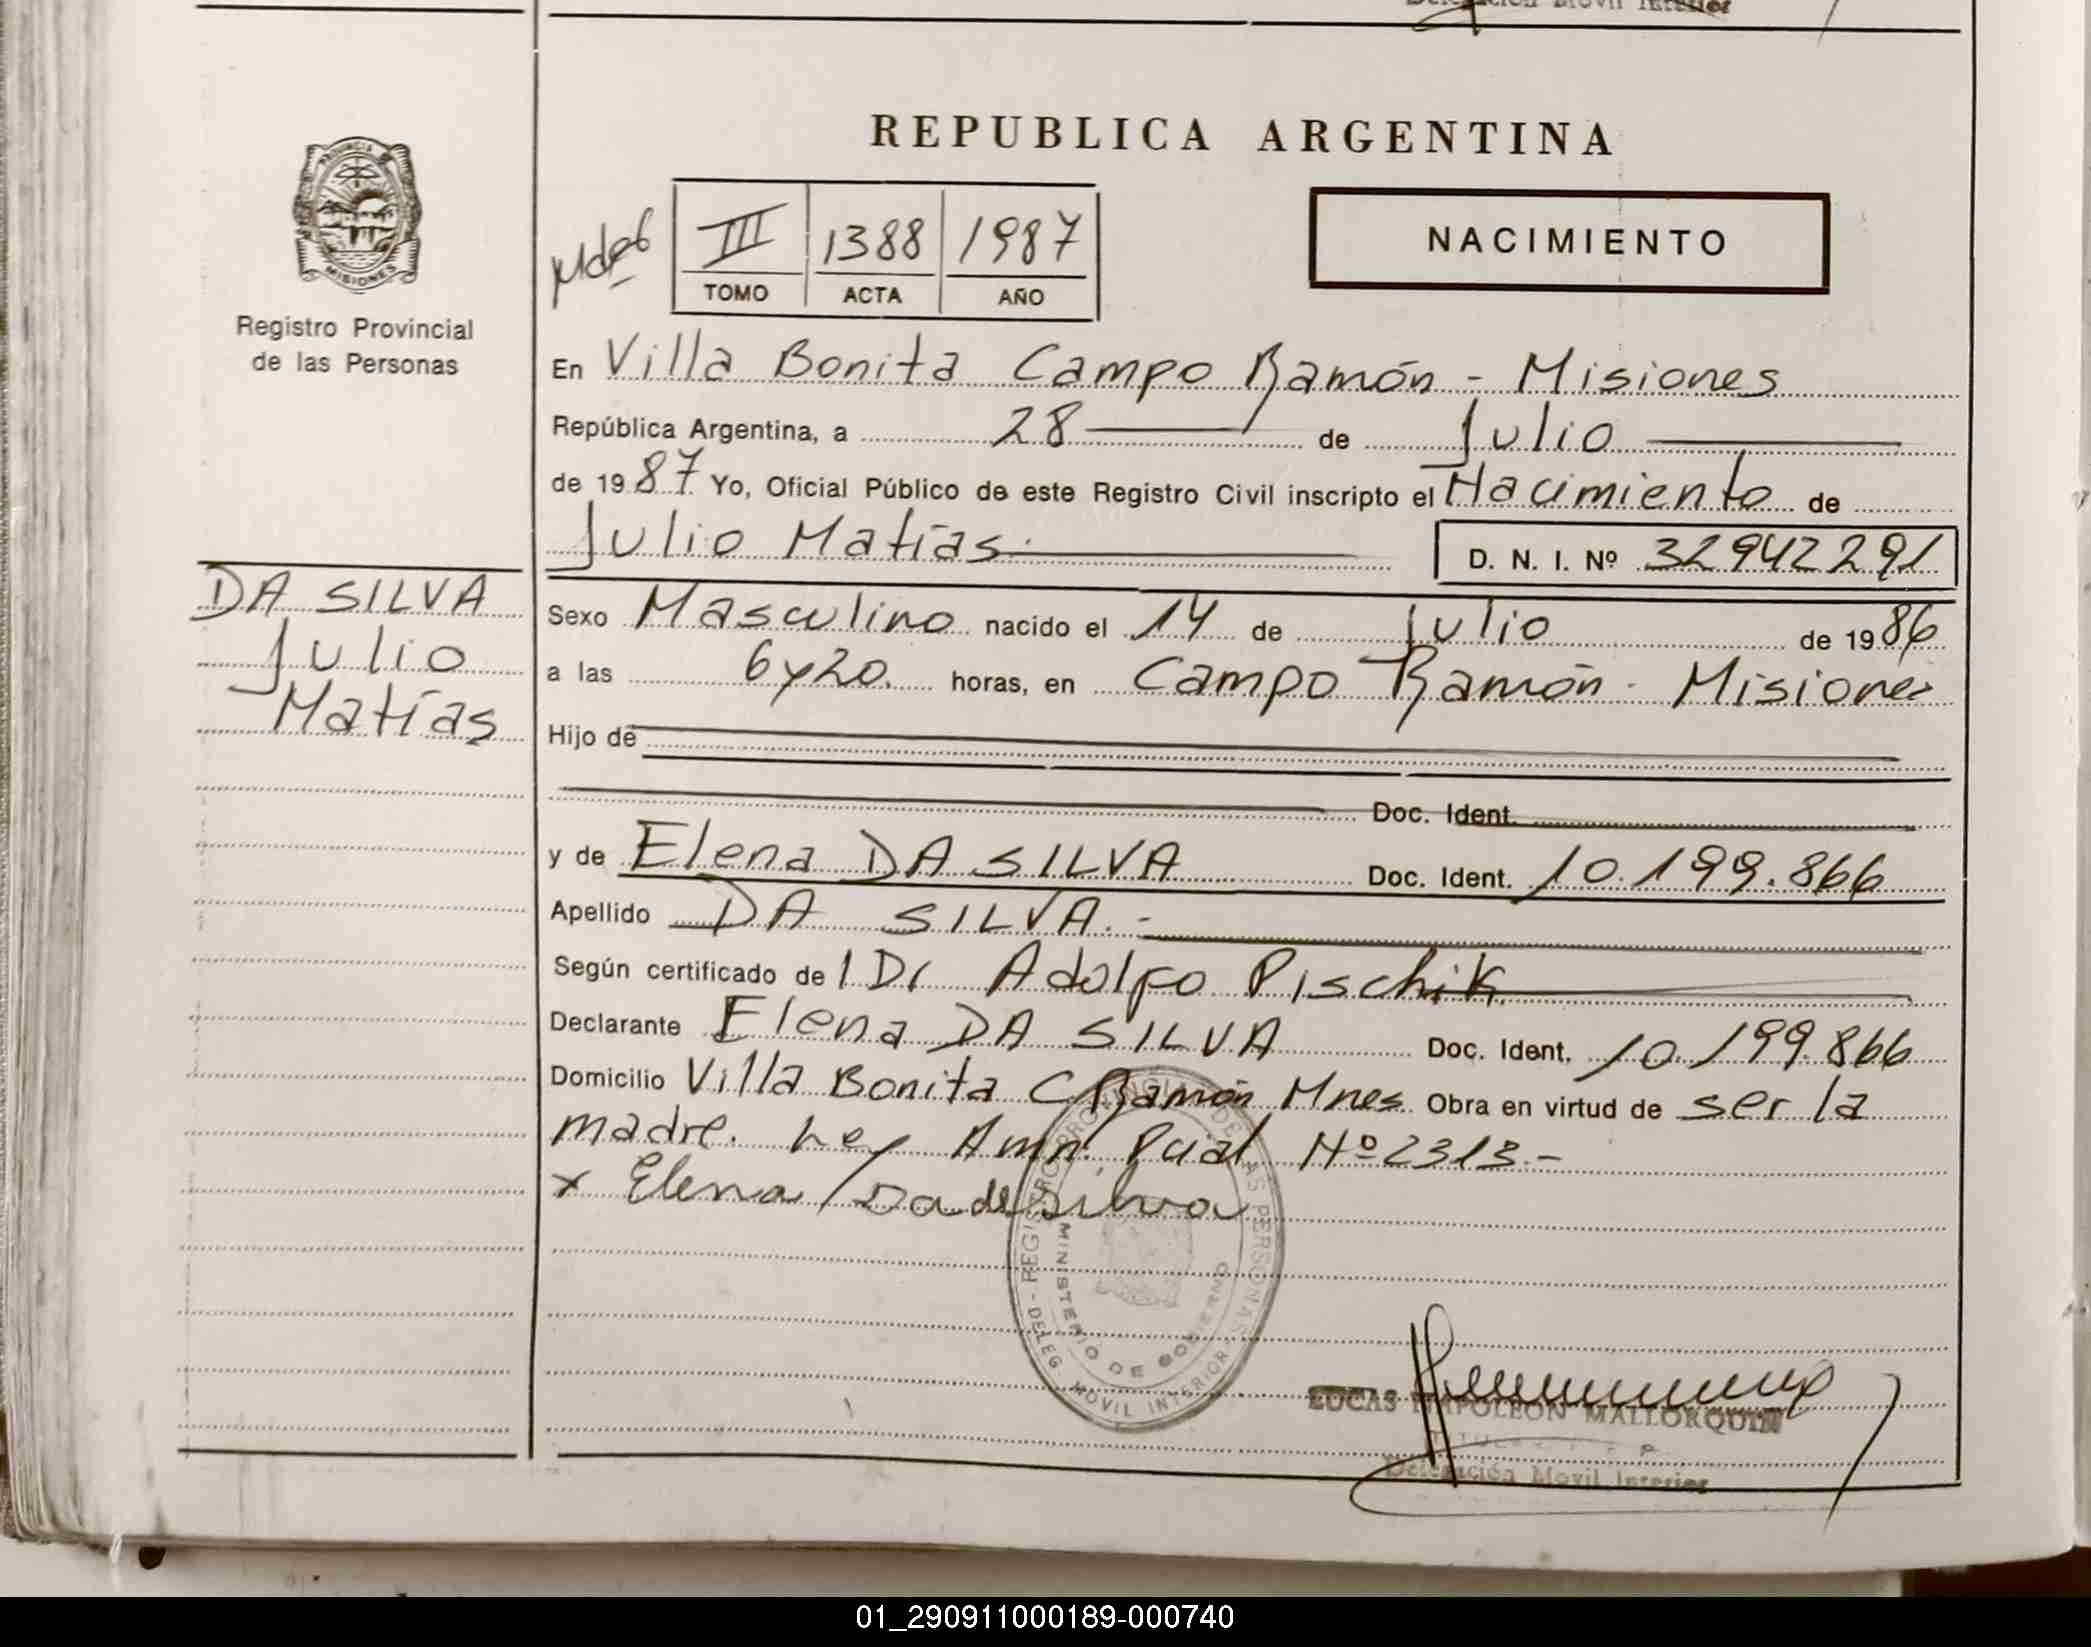 REPUBLICA ARGENTINA
PROVINCIA
MISIONES
Registro Provincial
de las Personas
III 1388 1987
TOMO ACTA AÑO
NACIMIENTO
En Villa Bonita Campo Ramón - Misiones
República Argentina, a 28 de Julio
de 1987 Yo, Oficial Público de este Registro Civil inscripto el Nacimiento de
Julio Matías.
D. N. I. Nº 32942291
DA SILVA
Julio
Matías
Sexo Masculino nacido el 14 de Julio de 1986
a las 6 y 20. horas, en Campo Ramón - Misiones
Hijo de
Doc. Ident.
y de Elena DA SILVA Doc. Ident. 10.199.866
Apellido DA SILVA.-
Según certificado de l Dr Adolfo Pischik
Declarante Elena DA SILVA Doc. Ident. 10.199.866
Domicilio Villa Bonita C Ramón Mnes Obra en virtud de ser la
madre. Ley Amn. Pcial Nº 2313.-
x Elena Da de Silva
REGISTRO PROVINCIAL DE LAS PERSONAS
DELEG. MOVIL INTERIOR
MINISTERIO DE GOBIERNO
LUCAS NAPOLEON MALLORQUIN
Delegación Movil Interior
01_290911000189-000740